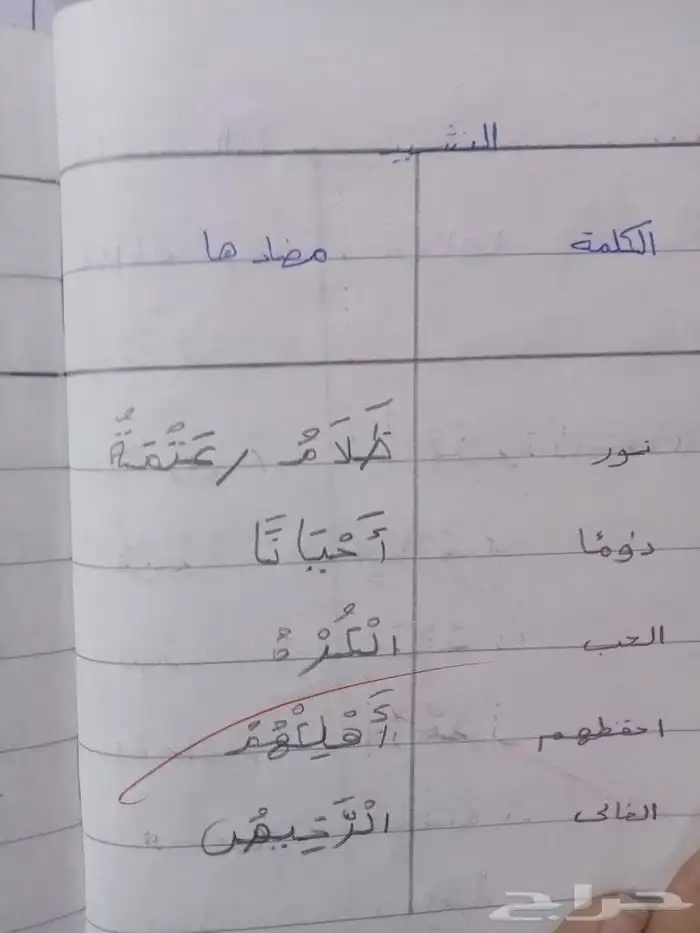 النشيد
الكلمة مضادها
نور ظَلَامُ / عَتْمَةٌ
دومًا أَحْيَانًا
الحب الْكُرْهُ
احفظهم أَهْلِكْهُمْ
الغالي الرَّخِيصُ
حراج